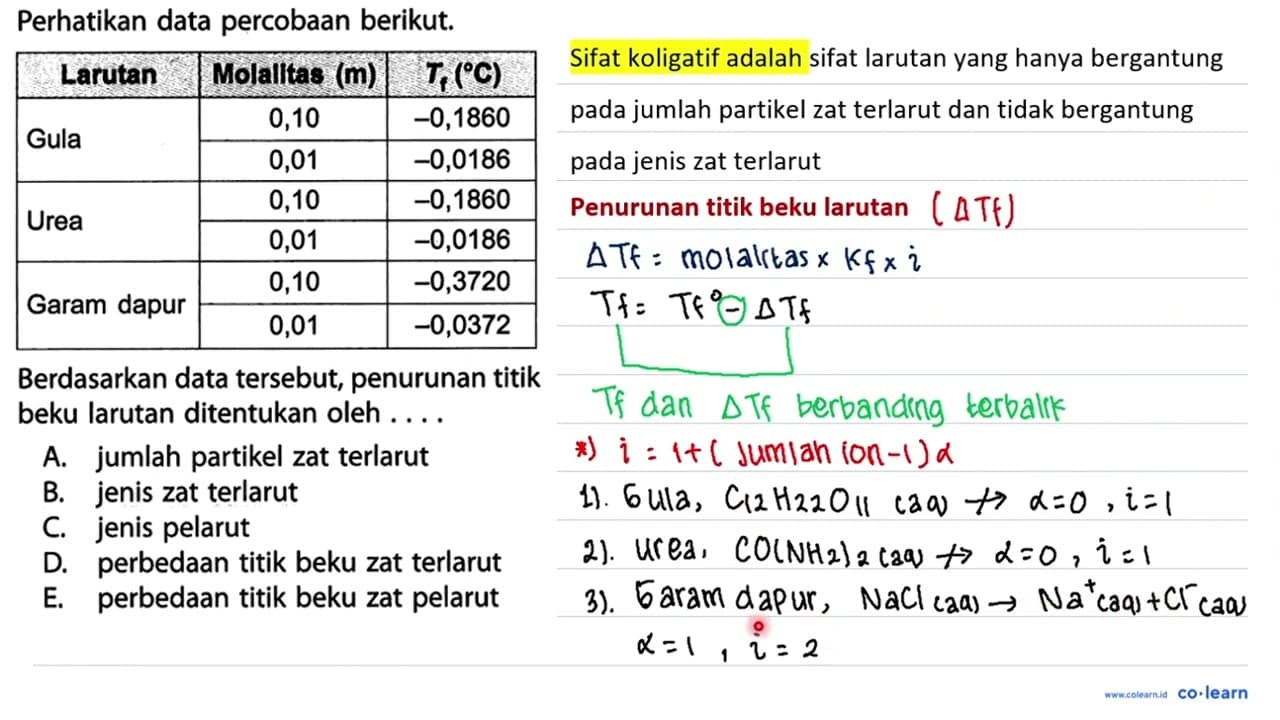 Perhatikan data percobaan berikut.
Larutan Molalitas (m) Tf (°C)
Gula 0,10 –0,1860
0,01 –0,0186
Urea 0,10 –0,1860
0,01 –0,0186
Garam dapur 0,10 –0,3720
0,01 –0,0372
Berdasarkan data tersebut, penurunan titik
beku larutan ditentukan oleh . . . .
A. jumlah partikel zat terlarut
B. jenis zat terlarut
C. jenis pelarut
D. perbedaan titik beku zat terlarut
E. perbedaan titik beku zat pelarut
Sifat koligatif adalah sifat larutan yang hanya bergantung
pada jumlah partikel zat terlarut dan tidak bergantung
pada jenis zat terlarut
Penurunan titik beku larutan (ΔTf)
ΔTf = molalitas x Kf x i
Tf = Tf° - ΔTf
Tf dan ΔTf berbanding terbalik
*) i = 1+( Jumlah ion-1)α
1). Gula, C12H22O11 (aq) ↛ α=0 , i=1
2). Urea, CO(NH2)2 (aq) ↛ α=0 , i=1
3). Garam dapur, NaCl (aq) → Na⁺(aq)+Cl⁻(aq)
α=1 , i=2
www.colearn.id co·learn